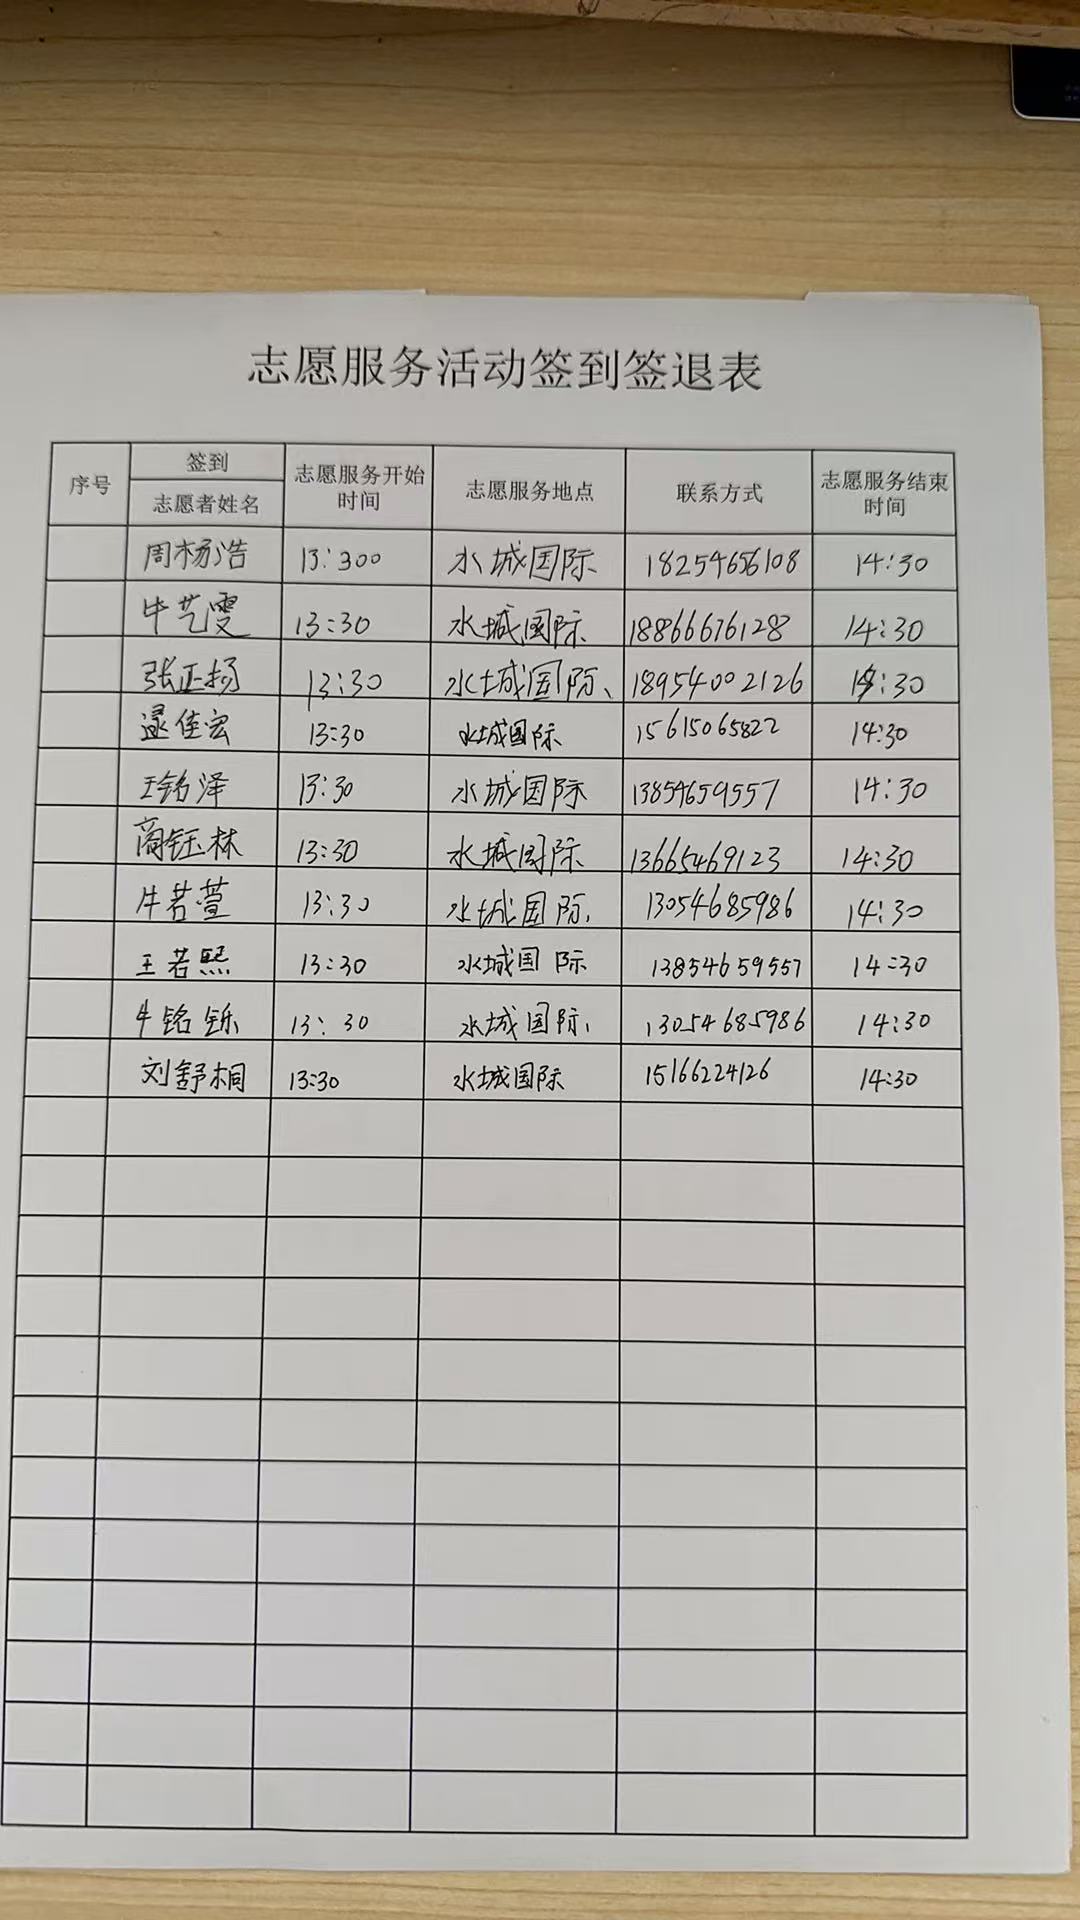 志愿服务活动签到签退表
序号 签到 志愿者姓名 志愿服务开始时间 志愿服务地点 联系方式 志愿服务结束时间
周杨浩 13:300 水城国际 18254656108 14:30
牛艺雯 13:30 水城国际 18866676128 14:30
张正扬 13:30 水城国际、 18954002126 14:30
逯佳宏 13:30 水城国际 15615065822 14:30
王铭泽 13:30 水城国际 13854659557 14:30
商钰林 13:30 水城国际 13665469123 14:30
牛若萱 13:30 水城国际、 13054685986 14:30
王若熙 13:30 水城国际 13854659557 14:30
牛铭铄 13:30 水城国际、 13054685986 14:30
刘舒桐 13:30 水城国际 15166224126 14:30